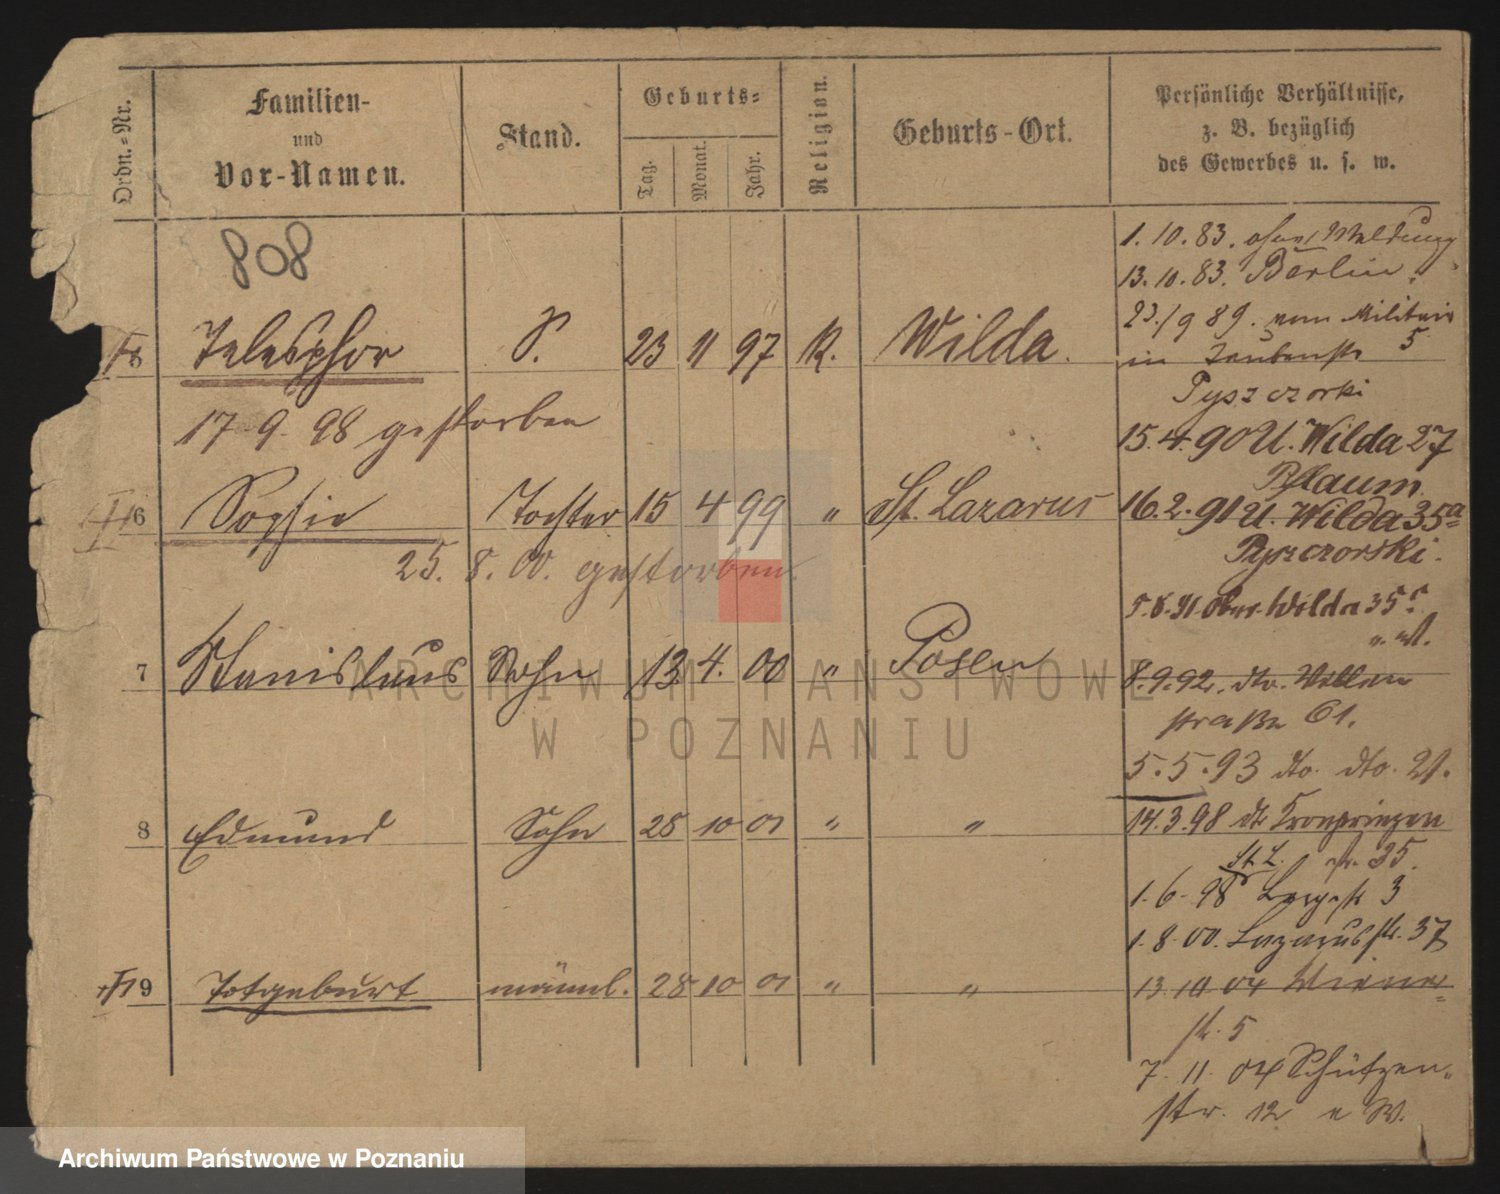 Ordn.-Nr.
Familien-
und
Vor-Namen.
Stand.
Geburts-
Tag.
Monat.
Jahr.
Religion.
Geburts-Ort.
Persönliche Verhältnisse,
z. B. bezüglich
des Gewerbes u. s. w.
808
5 Telesphor S. 23 11 97 K. Wilda.
17.9.98 gestorben
6 Sophie Tochter 15 4 99 " St. Lazarus
25. 8. 00. gestorben.
7 Stanislaus Sohn 13 4. 00 " Posen
8 Edmund Sohn 28 10 01 " "
9 Totgeburt männl. 28 10 01 " "
1.10.83. ohne Meldung
13.10.83. Berlin.
23./9 89. vom Militair
in Taubenstr 5
Pyszczorki
15.4.90 U. Wilda 27
Pflaum
16.2.91 U. Wilda 35a
Pyszczorski.
5.6.91. Ober-Wilda 35
8.9.92. dto.
straße 61.
5.5.93 dto. dto. 21.
14.3.98 dto Kronprinzen
str. 35.
St. L.
1.6.98 3
1.8.00. Lazarusstr. 37
13.10 04 Wiener
str. 5
7.11.04 Schützen-
str. 12 W.
ARCHIWUM PAŃSTWOWE
W POZNANIU
Archiwum Państwowe w Poznaniu